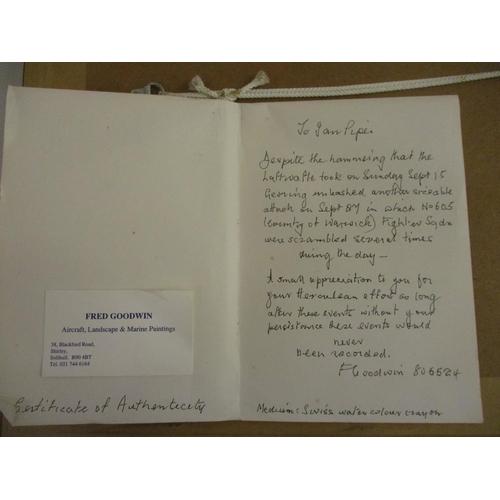 FRED GOODWIN
Aircraft, Landscape & Marine Paintings
38, Blackford Road,
Shirley,
Solihull. B90 4BT
Tel. 021 744 6164
Certificate of Authenticity
To Ian Piper
Despite the hammering that the
Luftwaffe took on Sunday Sept 15
Goering unleashed another sizeable
attack on Sept 27 in which No 605
(County of Warwick) Fighter Sqdn
were scrambled several times
during the day —
A small appreciation to you for
your Herculean effort as long
after these events without your
persistance these events would
never
been recorded.
F Goodwin 806524
Medium: Swiss water colour crayon